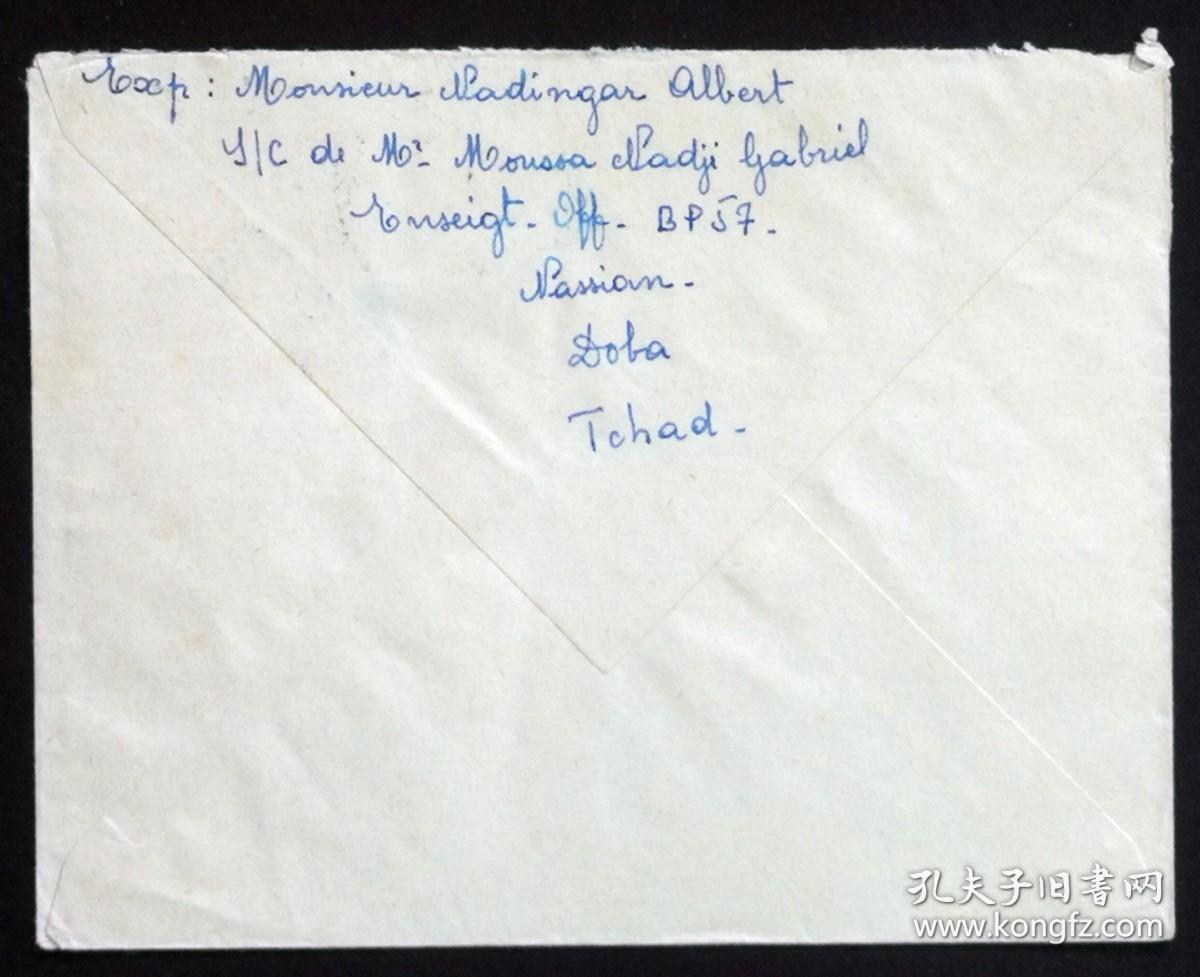 Exp : Monsieur Nadingar Albert
S/C de Mr. Moussa Nadji Gabriel
Enseigt. Off. BP 57.
Nassian.
Doba
Tchad.
孔夫子旧書网
www.kongfz.com